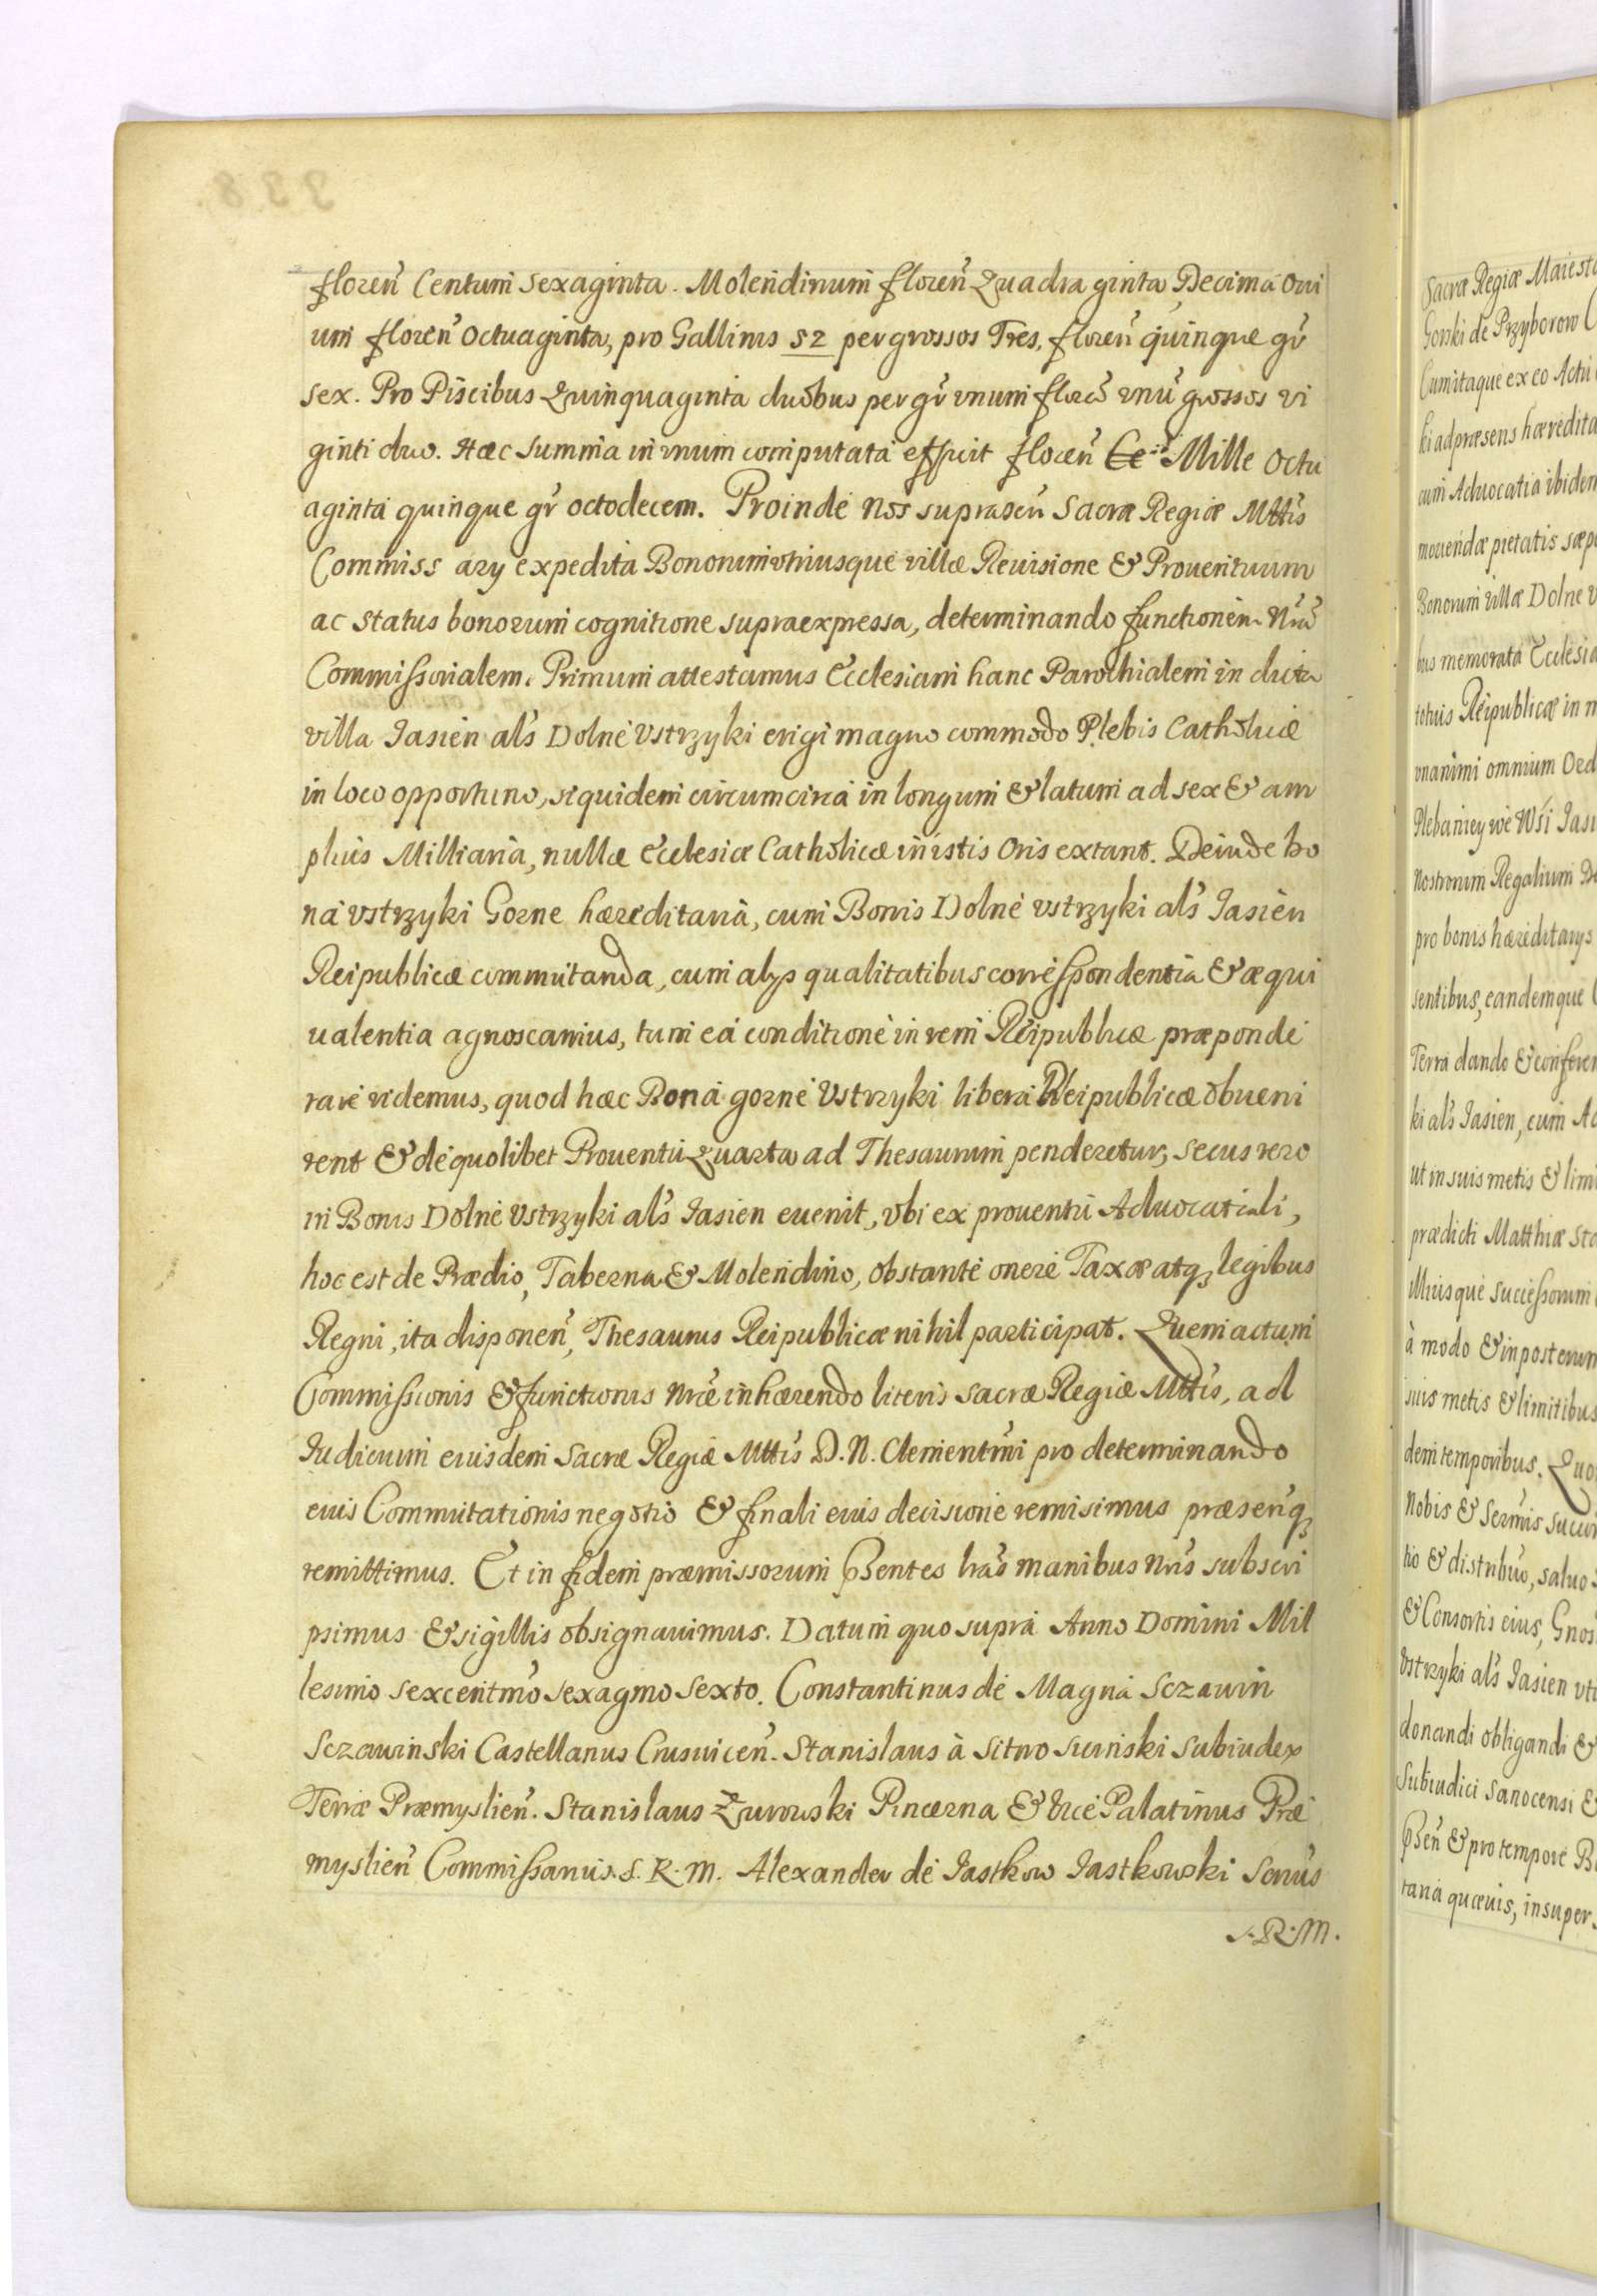 floreñ Centum sexaginta. Molendinum floreñ Quadra ginta Decima Ovi
um floreñ Octuaginta, pro Gallinis 52 per grossos Tres, floreñ quinque gr̃
sex. Pro Piscibus Quinquaginta duobus per gr̃ vnum floreñ vnũ grossos vi
ginti duo. Hæc summa in vnum computata efficit floreñ Mille Octu
aginta quinque gr̃ octodecem. Proinde Nos suprascñ Sacræ Regiæ Mttis
Commiss ary expedita Bonorum vtriusque villæ Reuisione & Prouentuum
ac status bonorum cognitione supraexpressa, determinando functionem Nrã
Commissorialem. Primum attestamus Ecclesiam hanc Parochialem in dicta
villa Jasien als Dolne Vstrzyki erigi magno commodo Plebis Catholicæ
in loco opportuno, siquidem circumcirca in longum & latum ad sex & am
plius Milliaria, nullæ Ecclesiæ Catholicæ in istis Oris extant. Deinde bo
na vstrzyki Gorne hæreditaria, cum Bonis Dolne vstrzyki als Jasien
Reipublicæ commutanda, cum alys qualitatibus correspondentia & æqui
ualentia agnoscamus, tum ea conditione in rem Reipublicæ præponde
rare videmus, quod hæc Bona gorne Vstrzyki libera Reipublicæ obueni
rent & de quolibet Prouentu Quarta ad Thesaurum penderetur, secus vero
in Bonis Dolne Vstrzyki als Jasien euenit, vbi ex prouentu Aduocatiali,
hoc est de Prædio, Taberna & Molendino, obstante onere Taxæ atq; legibus
Regni, ita disponeñ, Thesaurus Reipublicæ nihil participat. Quem actum
Commissionis & functionis Nræ inhærendo literis Sacræ Regiæ Mttis, ad
Judicium eiusdem Sacræ Regiæ Mttis D. N. Clementmi pro determinando
eius Commutationis negotio & finali eius decisione remisimus præsenq;
remittimus. Et in fidem præmissorum pñtes lrãs manibus Nris subscri
psimus & sigillis obsignauimus. Datum quo supra Anno Domini Mil
lesimo sexcentmo sexagmo sexto. Constantinus de Magna Sczawin
Sczawinski Castellanus Crusvicen̄. Stanislaus à Sitno Suwski Subiudex
Terræ Præmyslien̄. Stanislaus Zurowski Pincerna & Vice Palatinus Præ
myslien̄ Commissarius. S. R. M. Alexander de Jastkow Jastkowski Scrius
S. R. M.
Sacræ Regiæ Maiesta
Gorski de Przyborow
Cumitaque ex eo Actu
ki ad præsens hæredita
cum Aduocatia ibidem
mouendæ pietatis sæpe
Bonorum villæ Dolne v
bus memorata Ecclesia
totuis Reipublicæ in m
vnanimi omnium Ord
Plebaniey we Wsi Jasi
Nostrorum Regalium
pro bonis hæreditarys
sentibus, eandemque
Terra dando & conferen
ki als Jasien, cum Ad
ut in suis metis & limi
prædicti Matthiæ Sta
illiusque successorum
à modo & inposterum
suis metis & limitibus
dem temporibus. Quo
Nobis & Sermis succes
tio & distribuo, saluo
& Consortis eius, Gnos
Vstrzyki als Jasien vti
donandi obligandi &
Subiudici Sanocensi &
pñsen̄ & pro tempore B
tana quævis, insuper